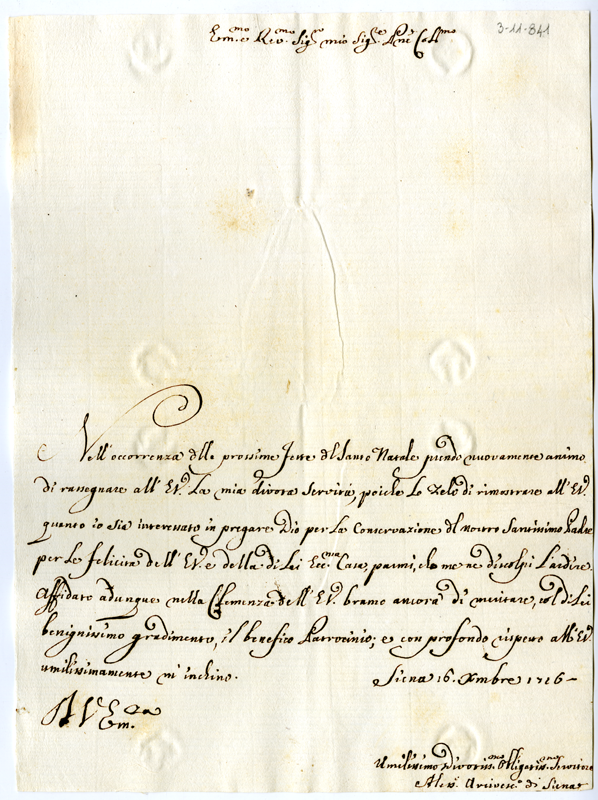 3-11-841
Em.mo e Rev.mo Sig.r mio Sig.r P.ne Coll.mo
Nell'occorrenza delle prossime feste del Santo Natale prendo nuovamente animo
di rassegnare all'EV. La mia divota servitù, poiche lo zelo di rimostrare all'EV.
quanto io sia interessato in pregare Dio per la Conservazione del nostro Santissimo Padre
per le felicità dell'EV. e della di Lei Ecc.ma Casa, parmi, che me ne discolpi l'ardire.
Affidato adunque nella Clemenza dell'EV. bramo ancora di meritare, col di Lei
benignissimo gradimento, il benefico Patrocinio; e con profondo rispetto all'EV.
umilissimamente m'inchino.
Siena 16. Xmbre 1726
A V Em.za
Umilissimo Divotiss.mo Obligatiss.mo Servitore
Aless.o Arcivesc.o di Siena